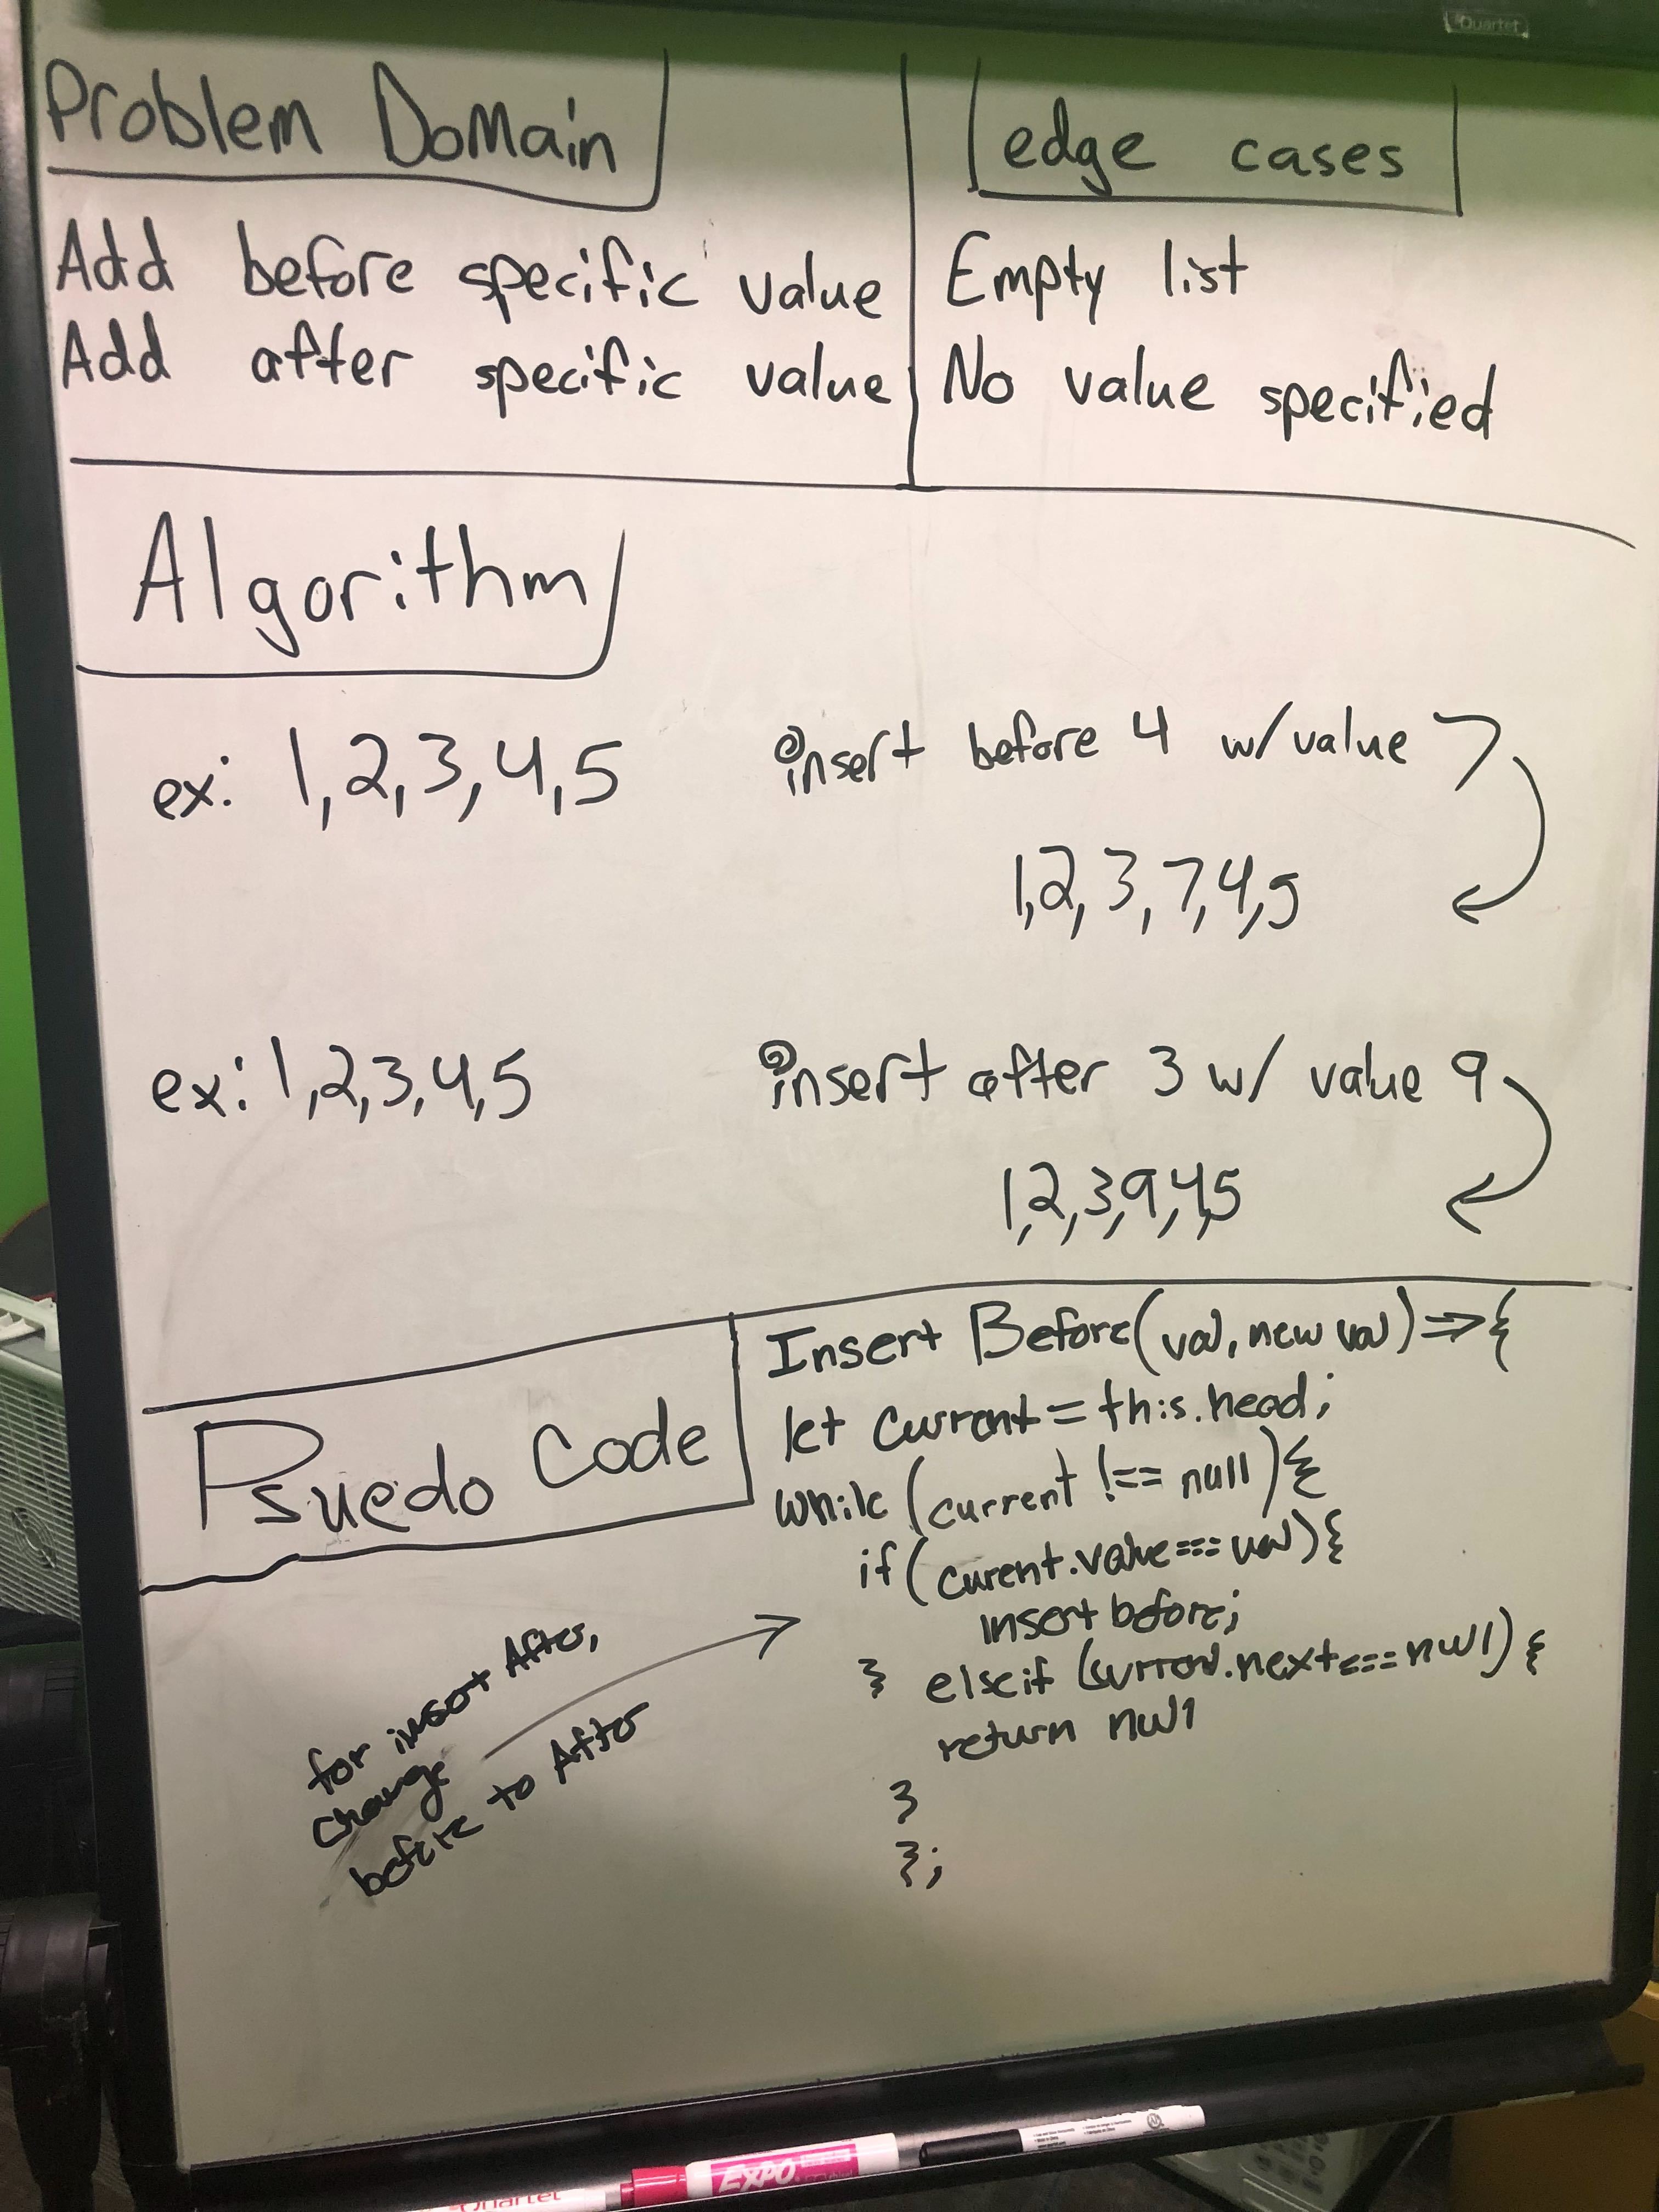 Quartet
Problem Domain
Add before specific value
Add after specific value
edge cases
Empty list
No value specified
Algorithm
ex: 1,2,3,4,5
insert before 4 w/value 7
1,2,3,7,4,5
ex: 1,2,3,4,5
insert after 3 w/ value 9
1,2,3,9,4,5
Psuedo Code
Insert Before(val, new val) => {
let current = this.head;
while (current !== null){
if (curent.value === val){
insert before;
} else if (current.next === null) {
return null
}
};
for insert After,
change
before to After
EXPO
Quartet